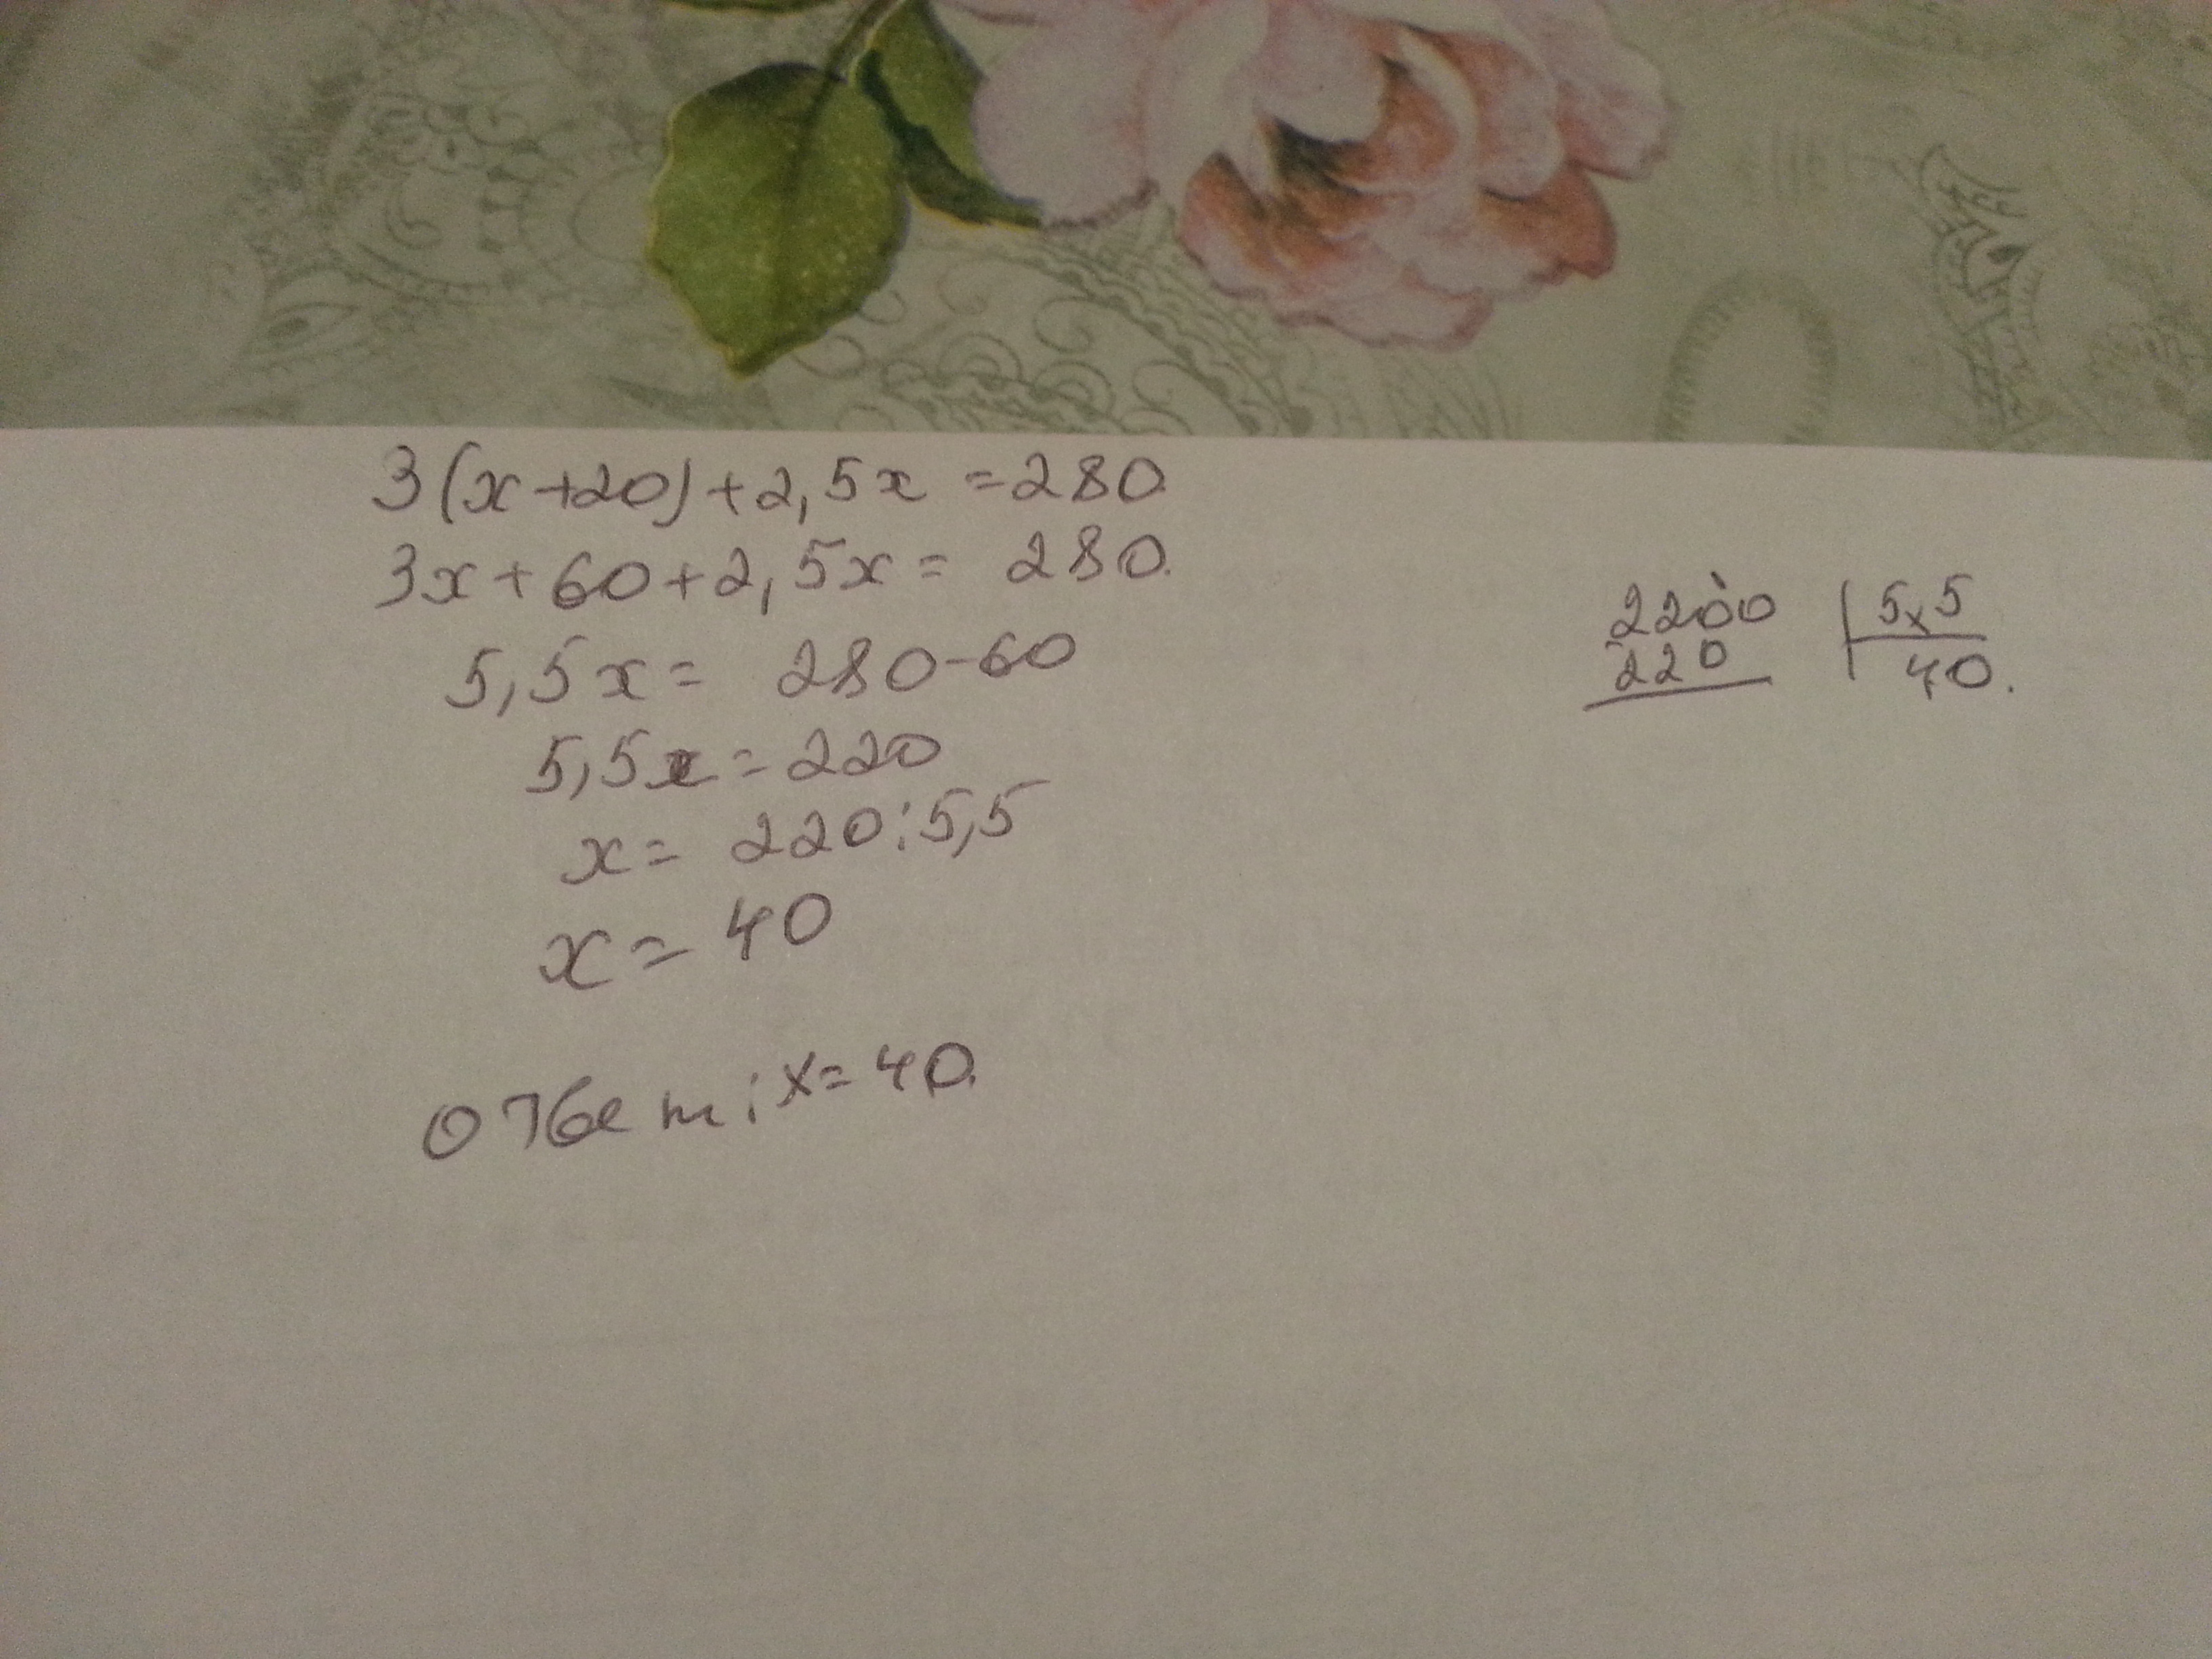 3(x+20)+2,5x=280.
3x+60+2,5x= 280.
5,5x= 280-60
5,5x=220
x= 220:5,5
x= 40
Ответ: x=40.
2200 | 5,5
220 | 40.